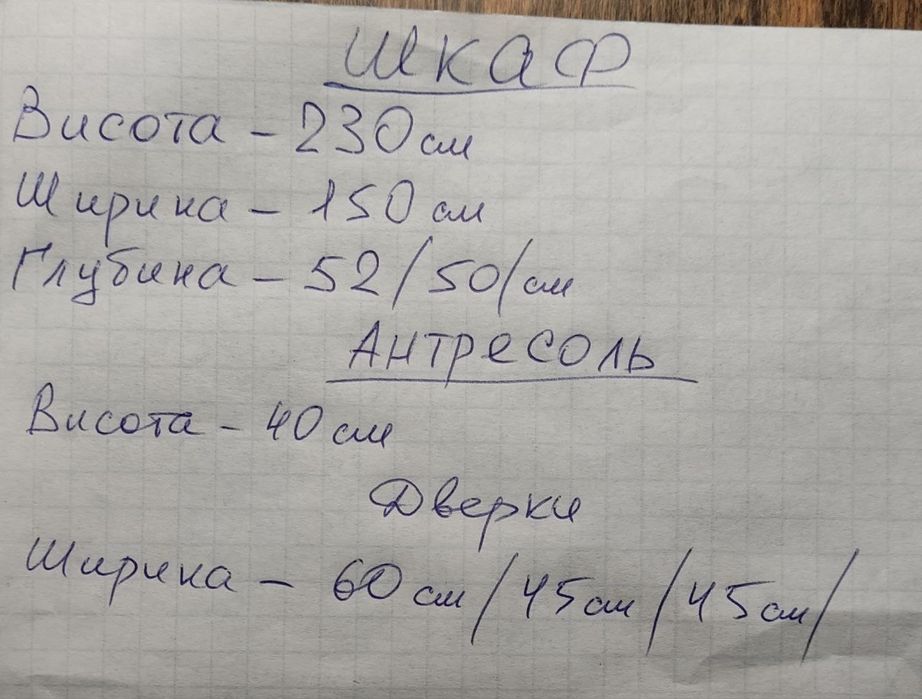 ШКАФ
Висота - 230 см
Ширина - 150 см
Глубина - 52/50/см
АНТРЕСОЛЬ
Висота - 40 см
Дверки
Ширина - 60 см/45 см/45 см/